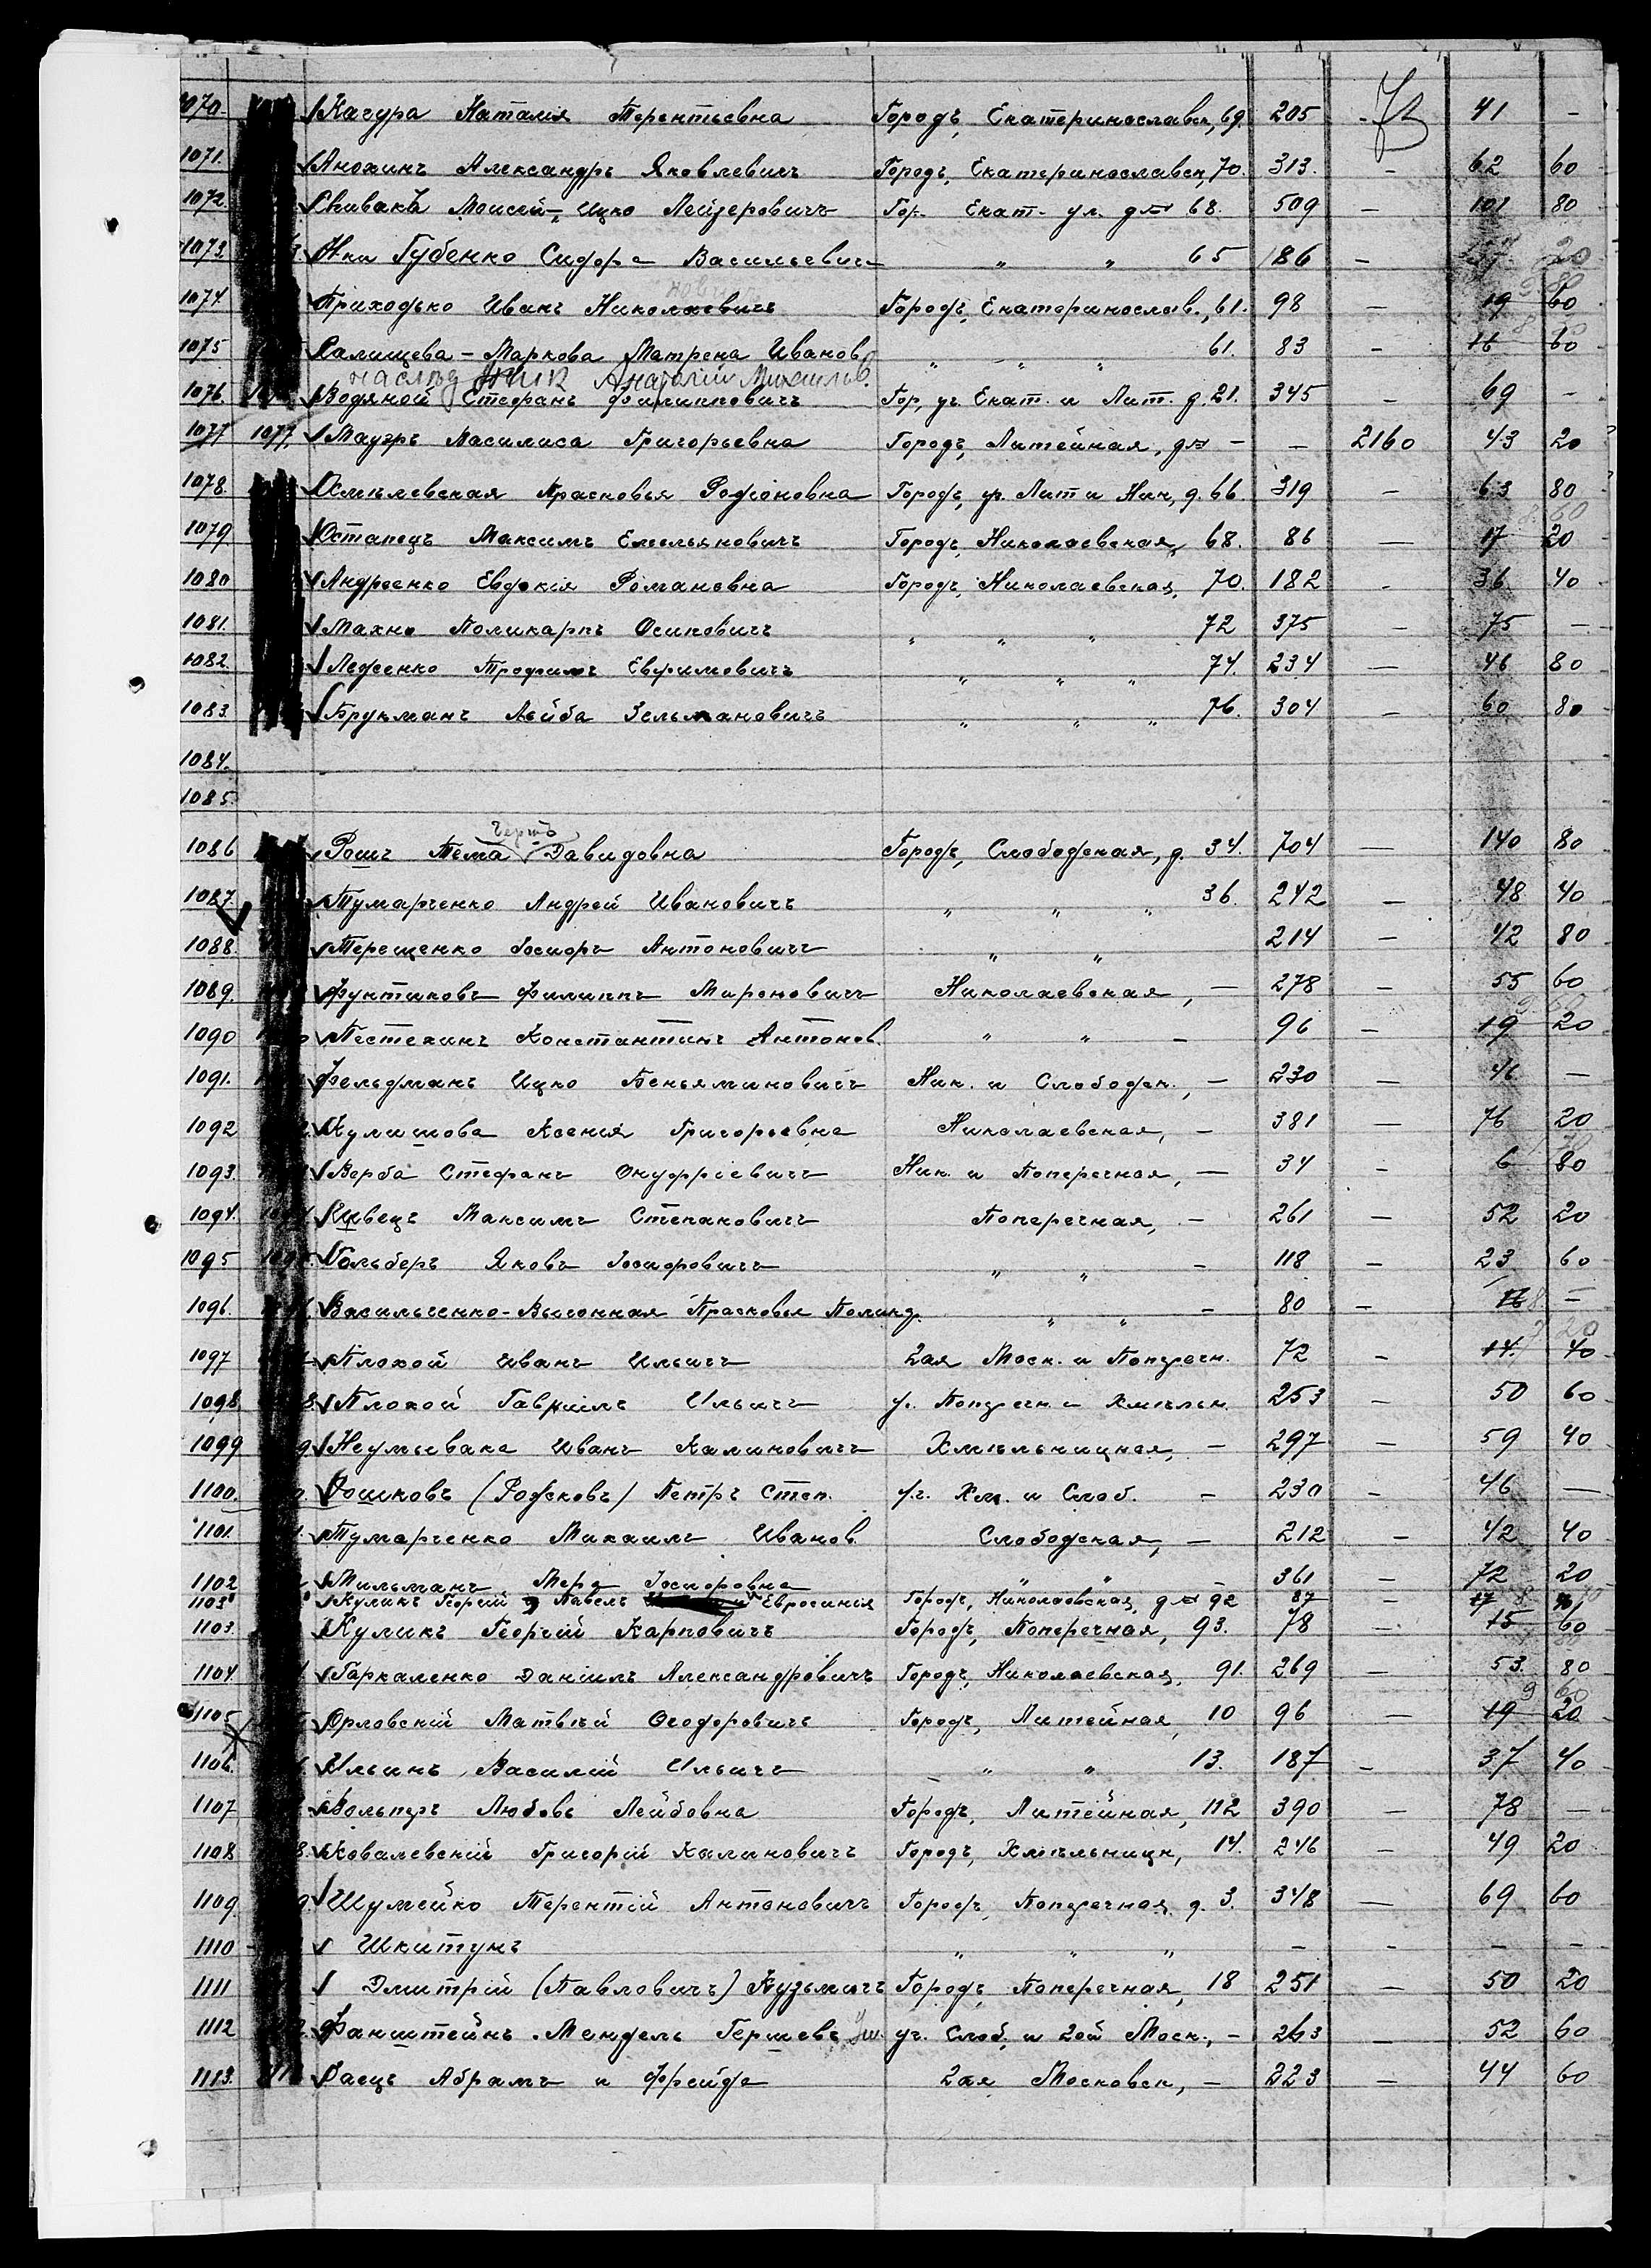 1070. Качура Наталія Терентьевна Городъ, Екатеринославск, 69. 205 - 41 -
1071. Анохинъ Александръ Яковлевичъ Городъ, Екатеринославск, 70. 313. - 62 60
1072. Спивакъ Моисей-Ицко Лейзеровичъ Гор. Екат. ул. д. 68. 509 - 101 80
1073. Н-ки Губенко Сидора Васильевича " " 65 186 - 37 20
1074. Приходько Иванъ Николаевичъ Городъ, Екатеринослав., 61. 98 - 19 60
1075 Салищева-Маркова Матрена Иванов. " " " 61. 83 - 16 60
Анатолій Михайлов.
1076. Водяной Стефанъ Филипповичъ Гор, уг. Екат. и Лит. д. 21. 345 - 69 -
1077 1077. Мауэръ Василиса Григорьевна Городъ, Литейная, д. - - 2160 43 20
1078. Хмѣлевская Прасковья Родіоновна Городъ, уг. Лит и Ник, д. 66. 319 - 63 80
1079. Остапецъ Максимъ Емельяновичъ Городъ, Николаевская, 68. 86 - 17 20
1080 Андреенко Евдокія Романовна Городъ, Николаевская, 70. 182 - 36 40
1081. Махно Поликарпъ Осиповичъ " " " 72 375 - 75 -
1082. Леженко Трофимъ Евфимовичъ " " " 74. 234 - 46 80
1083. Брукманъ Лейба Зельмановичъ " " " 76. 304 - 60 80
1084.
1085
1086 Рошъ Тема Давидовна Городъ, Слободская, д. 34. 704 - 140 80
1087. Тумарченко Андрей Ивановичъ " " " 36. 242 - 48 40
1088. Терещенко Іосифъ Антоновичъ " " 214 - 42 80
1089. Фунтиковъ Филиппъ Мироновичъ Николаевская, - 278 - 55 60
1090 Пестехинъ Константинъ Антонов. " " - 96 - 19 20
1091. Фельдманъ Ицко Беньяминовичъ Ник. и Слободск., - 230 - 46 -
1092 Кулишова Ксенія Григорьевна Николаевская, - 381 - 76 20
1093. Верба Стефанъ Онуфріевичъ Ник. и Поперечная, - 34 - 6 80
1094. Швецъ Максимъ Степановичъ Поперечная, - 261 - 52 20
1095 Гольберъ Яковъ Іосифовичъ " " - 118 - 23 60
1096. Васильченко-Высонная Прасковья " " - 80 - 16 -
1097 Плохой Иванъ Ильичъ 2ая Моск. и Попереч. 72 - 14. 40
1098 Плохой Гавріилъ Ильичъ у. Попереч. и Хмѣльн. 253 - 50 60
1099 Неумывака Иванъ Калиновичъ Хмѣльницкая, - 297 - 59 40
1100. Рошковъ (Рожковъ) Петръ Степ. уг. Хм. и Слоб. - 230 - 46 -
1101. Тумарченко Михаилъ Иванов. Слободская, - 212 - 42 40
1102 Мильманъ Мера Іосифовна " " - 361 - 72 20
1103 Куликъ Георгій Павелъ Евросинія Городъ, Николаевская, д 92 87 - 17
1103. Куликъ Георгій Карповичъ Городъ, Поперечная, 93. 78 - 15 60
1104. Гаркаленко Даніилъ Александровичъ Городъ, Николаевская, 91. 269 - 53. 80
1105 Орловскій Матвѣй Феодоровичъ Городъ, Литейная, 10 96 - 19 20
1106. Ильинъ Василій Ильичъ " " 13. 187 - 37 40
1107 Вольперъ Любовь Лейбовна Городъ, Литейная, 112 390 - 78 -
1108 Ковалевскій Григорій Калиновичъ Городъ, Хмѣльницк, 14. 246 - 49 20
1109. Шумейко Терентій Антоновичъ Городъ, Поперечная, д. 3. 348 - 69 60
1110 Шкитунъ " " " - - - -
1111 Дмитрій (Павловичъ) Кузьмичъ Городъ, Поперечная, 18 251 - 50 20
1112 Фанштейнъ Мендель Гершевъ уг. Слоб. и 2ой Моск., - 263 - 52 60
1113. Заецъ Абрамъ и Фрейда 2ая Московск, - 223 - 44 60